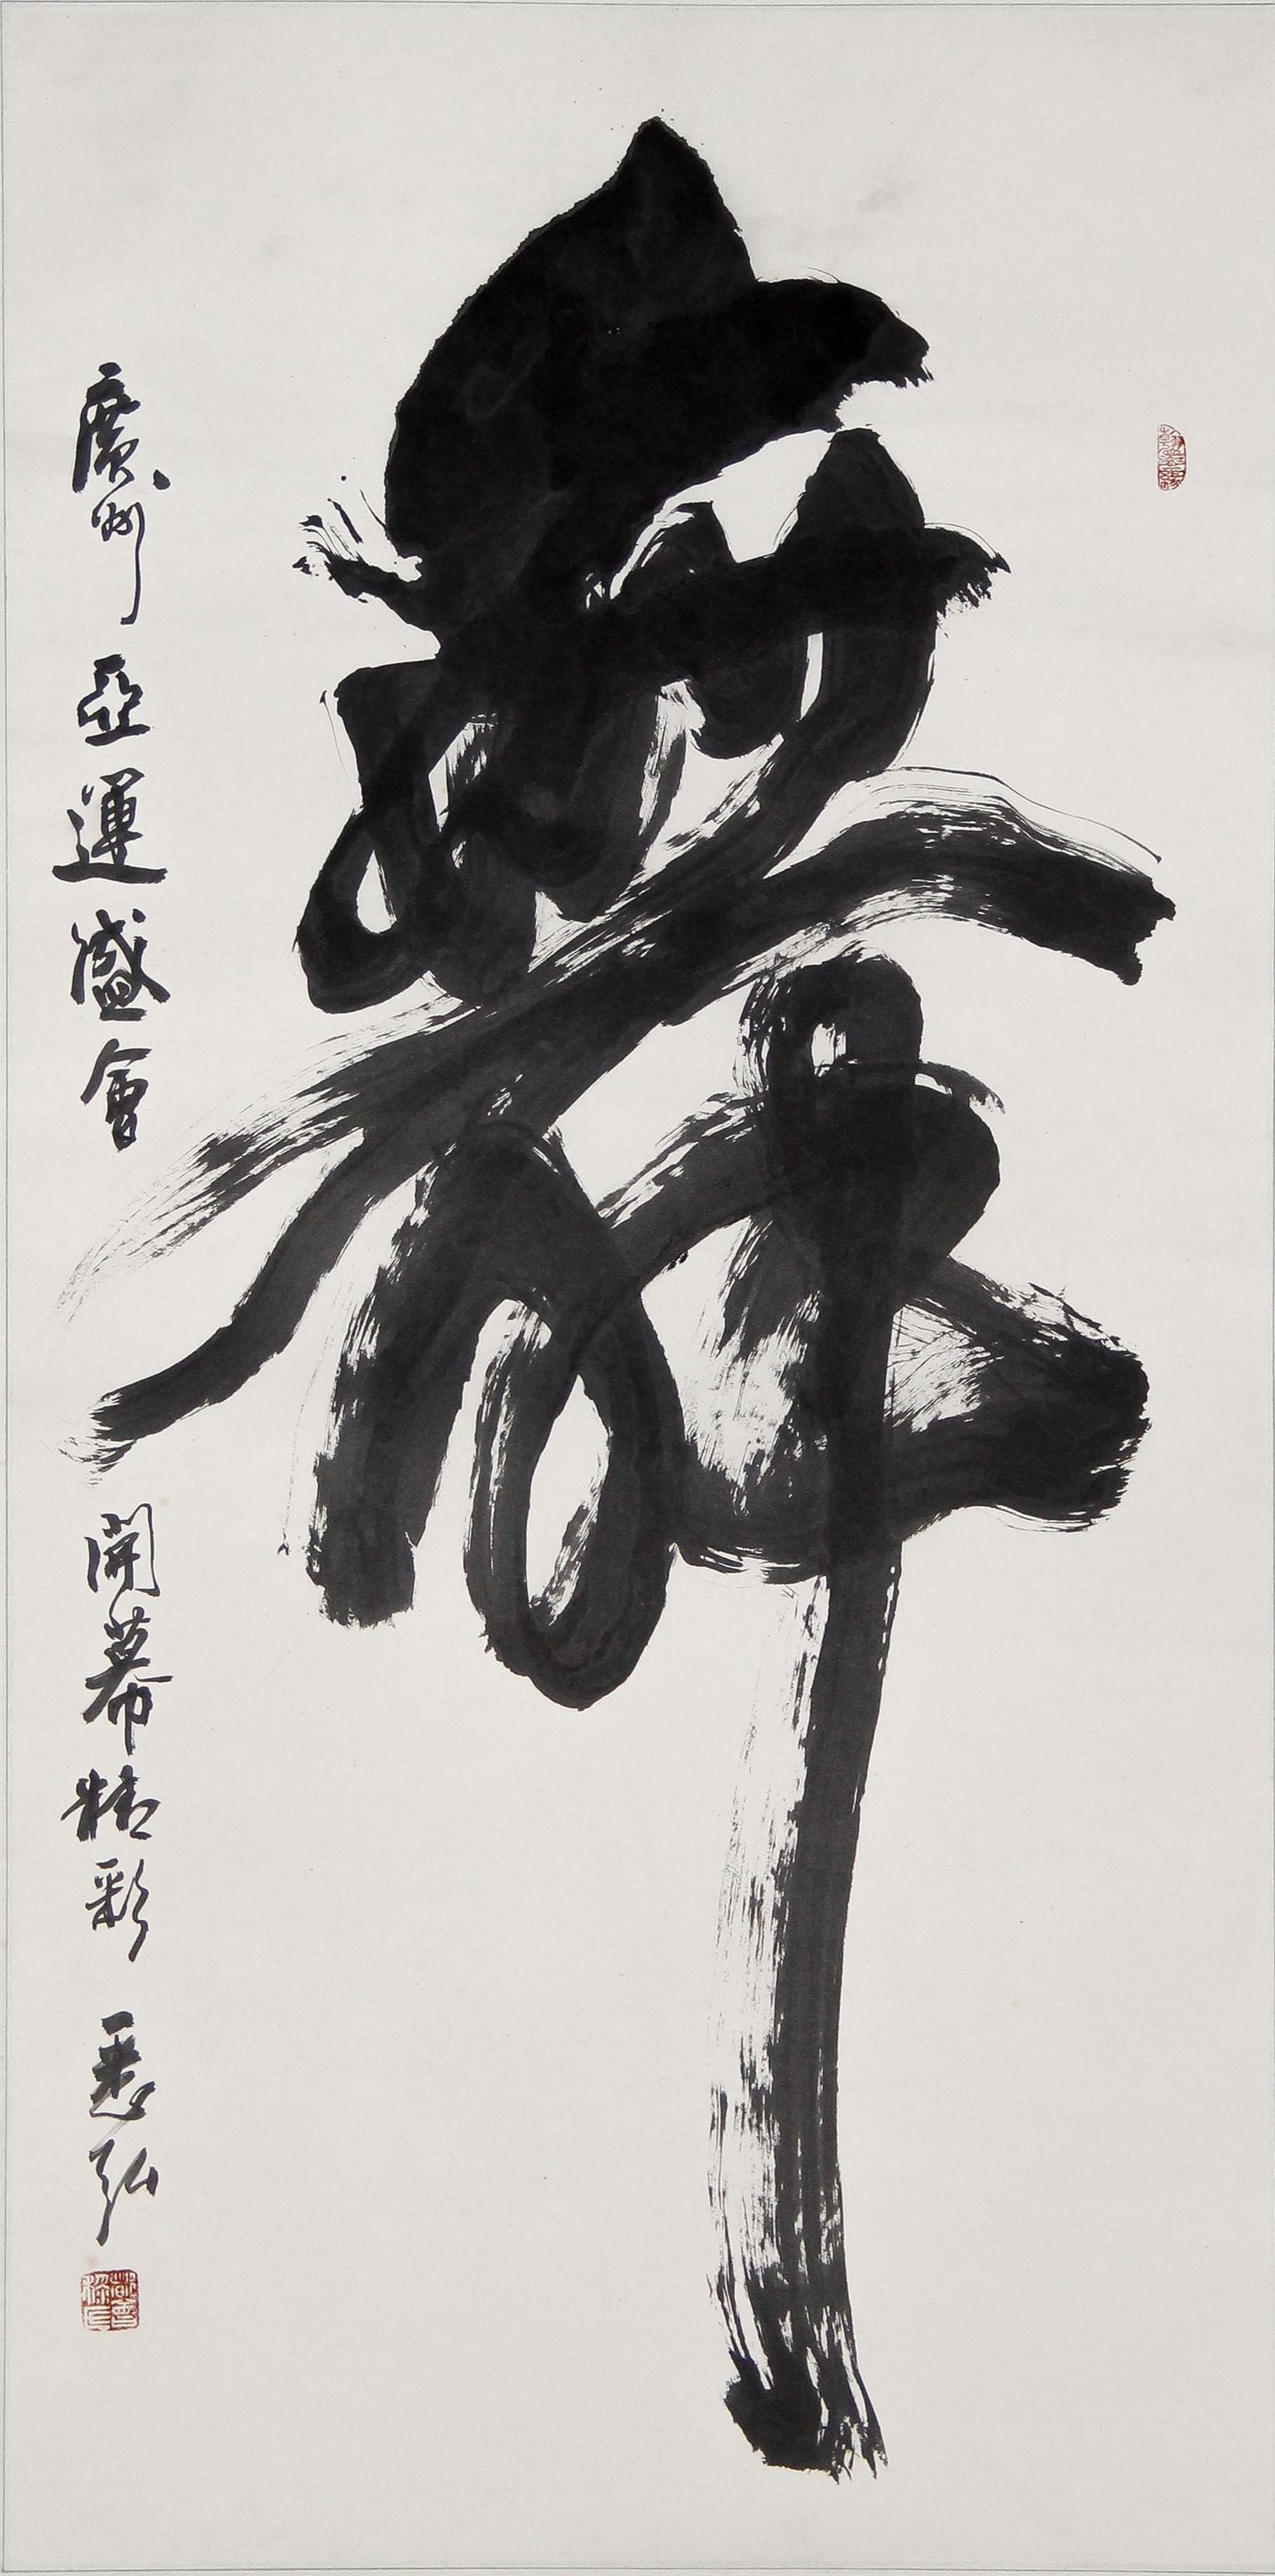 舞
廣州亞運盛會開幕精彩 悉弘